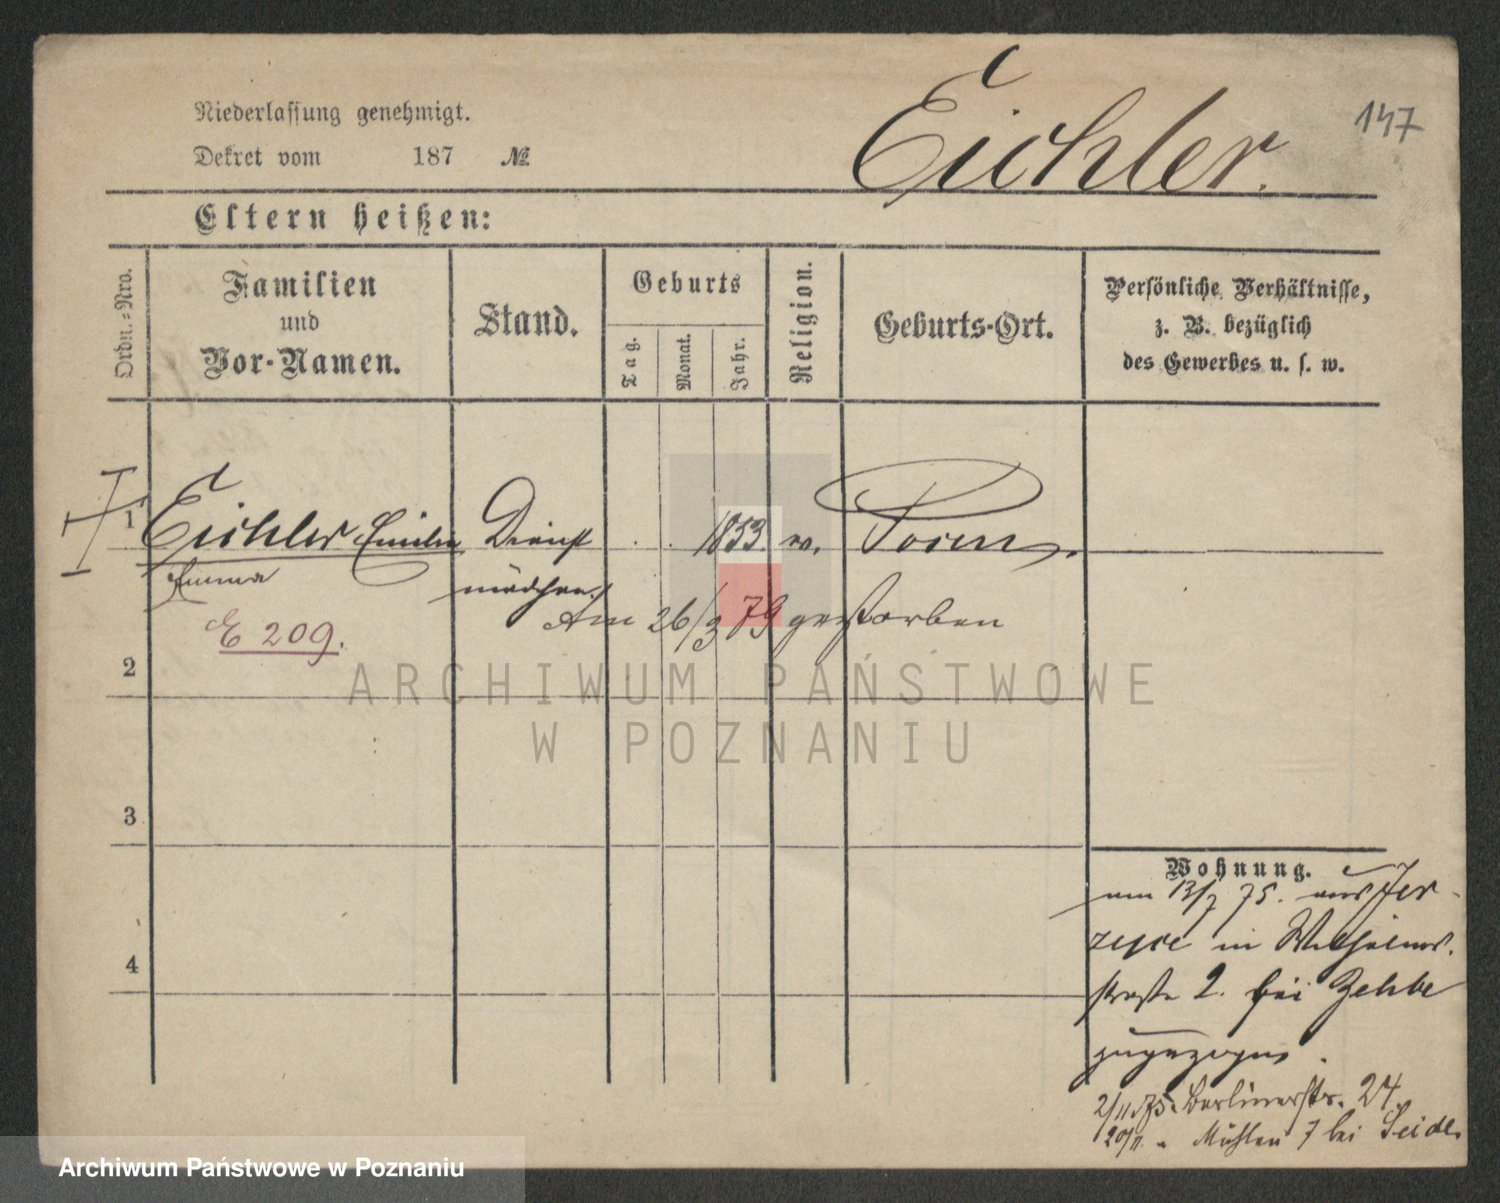 Niederlassung genehmigt.
Dekret vom 187 №
Eichler.
147
Eltern heißen:
Ordn.=Nro.
Familien
und
Vor-Namen.
Stand.
Geburts
Tag.
Monat.
Jahr.
Religion.
Geburts-Ort.
Persönliche Verhältnisse,
z. B. bezüglich
des Gewerbes u. s. w.
1 Eichler Emilie Dienst 1853. ev. Posen.
Emma mädchen.
Am 26/3 79 gestorben
E 209.
2
ARCHIWUM PAŃSTWOWE
W POZNANIU
3
4
Wohnung.
am 13/7 75. aus Jer-
zyce in Wilhelms-
straße 2. bei Zehbe
zugezogen.
2/11 75. Berlinerstr. 24.
20/11. " Mühlen 7 bei Seidel
Archiwum Państwowe w Poznaniu